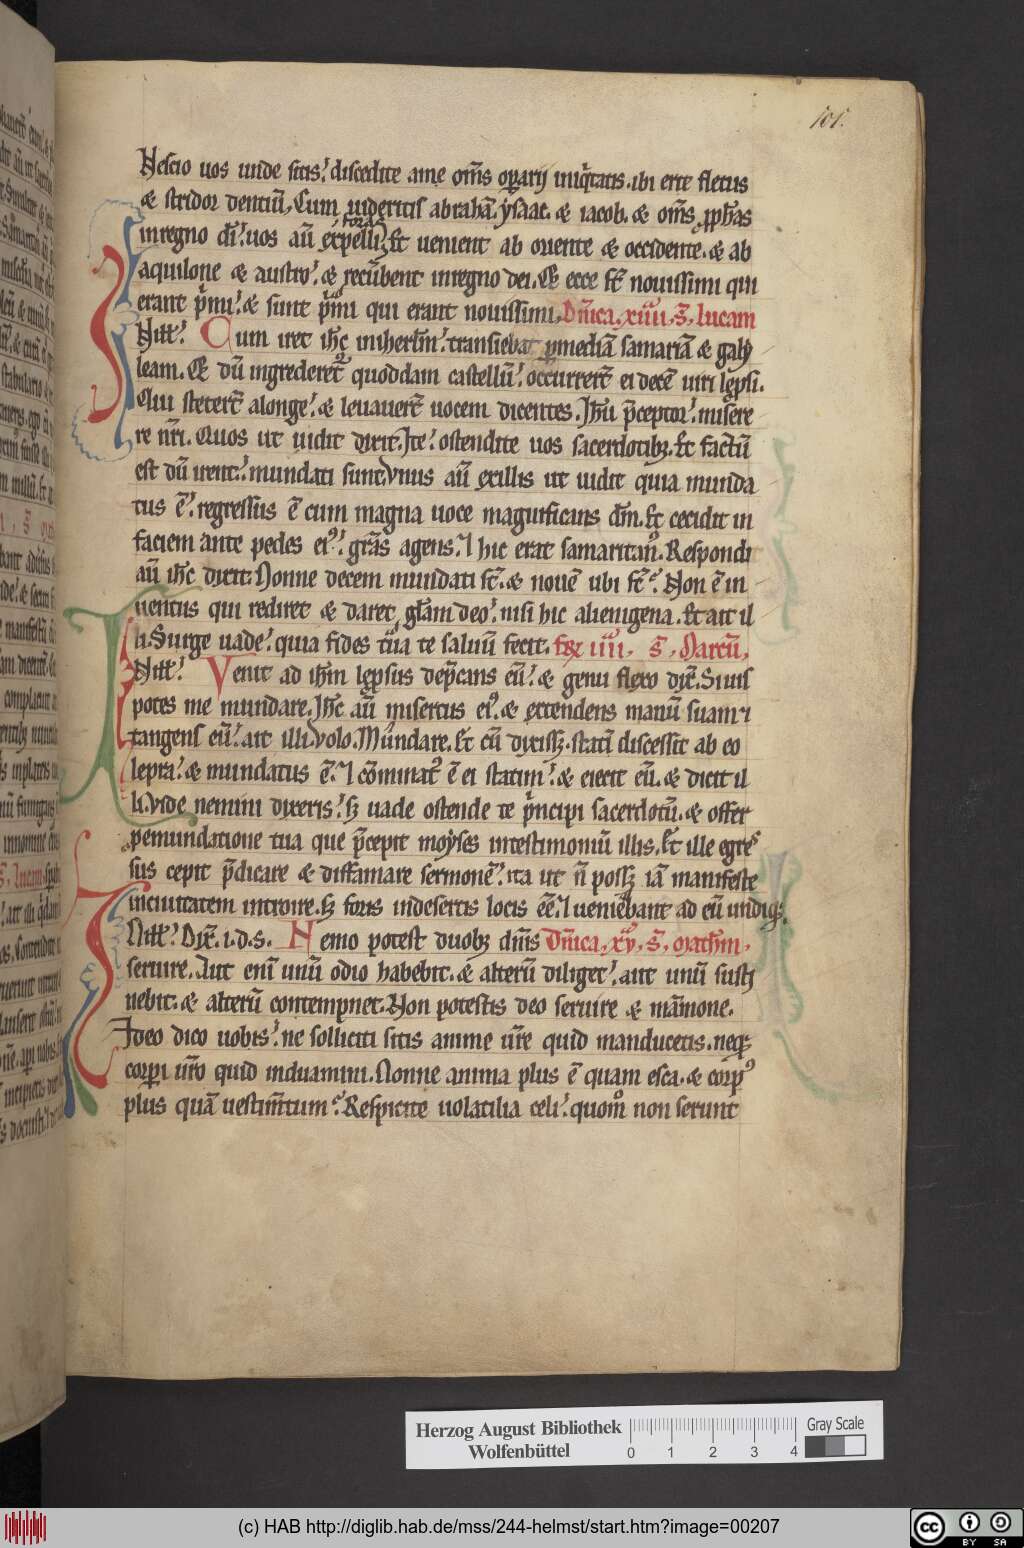 101.
Nescio uos unde sitis. discedite a me om̄s oꝑarij iniq̇tatis. ibi erit fletus
& stridor dentiū. Cum uideritis abrahā. ẏsaac. & iacob. & om̄s ꝓph̄as
in regno dī. uos aū expelli foras. Et uenient ab oriente & occidente. & ab
aquilone & austro. & recūbent in regno dei. Et ecce st̄ nouissimi qui
erant p̄mi. & sunt p̄mi qui erant nouissimi. Dn̄ica. xiiii. s̄. lucam
In ill̄. Cum iret ih̄c in iherl̄m. transiebat ꝑ mediā samariā & galẏ
leam. Et dū ingrederet᷑ quoddam castellū. occurrert̄ ei decē uiri lep̱si.
Qui stetert̄ a longe. & leuauert̄ uocem dicentes. Ih̄u p̄ceptor. misere
re nr̄i. Quos ut uidit dixit. Ite. ostendite uos sacerdotibꝫ. Et factū
est dū irent. mundati sunt. Vnus aū ex illis ut uidit quia munda
tus ē. regressus ē cum magna uoce magnificans dm̄. Et cecidit in
faciem ante pedes eiꝰ. gr̄as agens. ⁊ hic erat samaritanꝰ. Respondi
aū ih̄c dixit. Nonne decem mundati st̄. & nouē ubi st̄. Non ē in
uentus qui rediret & daret gl̄am deo. nisi hic alienigena. Et ait il
li. Surge uade. quia fides tua te saluū fecit. fex iiii. s̄. Marcū.
In ill̄. Venit ad ih̄m lep̱sus dep̄cans eū. & genu flexo dix̄. Si uis
potes me mundare. Ih̄c aū misertus eiꝰ. & extendens manū suam ⁊
tangens eū. ait illi. volo. Mundare. Et cū dixissꝫ. statī discessit ab eo
lepra. & mundatus ē. ⁊ cōminatꝰ ē ei statim. & eiecit eū. & dicit il
li. Vide nemini dixeris. sꝫ uade ostende te p̄ncipi sacerdotū. & offer
ꝑ emundatione tua que p̄cepit moẏses in testimoniū illis. Et ille egres
sus cepit p̄dicare & diffamare sermonē. ita ut n̄ possꝫ iā manifeste
in ciuitatem introire. sꝫ foris in desertis locis eē. ⁊ ueniebant ad eū undiqꝫ.
In ill̄. Dix̄. i. d. s. Nemo potest duobꝫ dn̄is Dn̄ica. xv. s̄. math̄m.
seruire. Aut eni unū odio habebit. & alterū diliget. aut unū susti
nebit. & alterū contempnet. Non potestis deo seruire & māmone.
Ideo dico uobis. ne solliciti sitis anime ur̄e quid manducetis. neqꝫ
corpi ur̄o quid induamini. Nonne anima plus ē quam esca. & corpꝰ
plus quā uestimētum. Respicite uolatilia celi. quom̊ non serunt
Herzog August Bibliothek
Wolfenbüttel
0 1 2 3 4
Gray Scale
(c) HAB http://diglib.hab.de/mss/244-helmst/start.htm?image=00207
cc BY SA